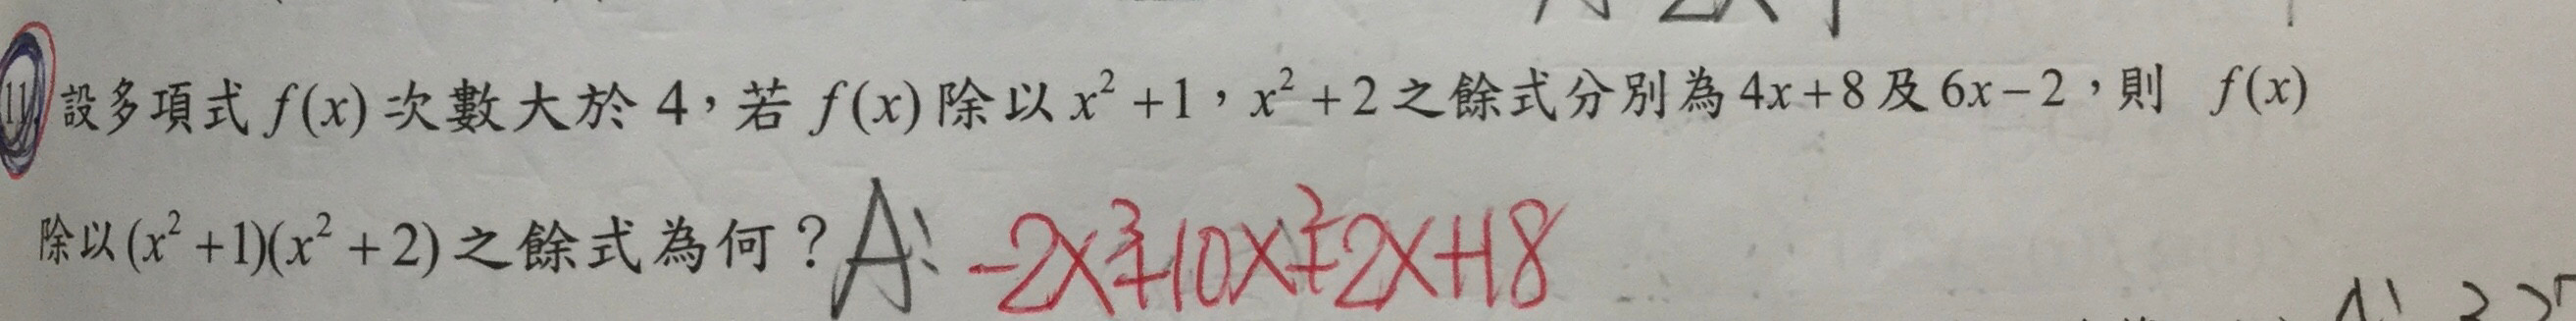 11 設多項式 f(x) 次數大於 4，若 f(x) 除以 x²+1，x²+2 之餘式分別為 4x+8 及 6x−2，則 f(x)
除以 (x²+1)(x²+2) 之餘式為何？A: −2x³+10x²+2x+18